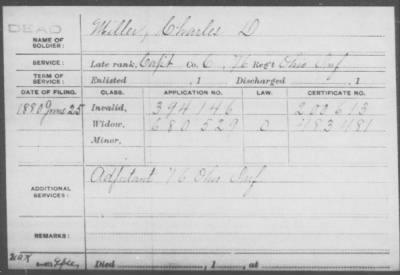 DEAD
NAME OF SOLDIER: Miller, Charles D
SERVICE: Late rank, Capt Co. C, 76 Reg't Ohio Inf
TERM OF SERVICE: Enlisted , 1 Discharged , 1
DATE OF FILING. CLASS. APPLICATION NO. LAW. CERTIFICATE NO.
1880 June 25 Invalid, 394146 203613
Widow, 680529 0 483481
Minor,
ADDITIONAL SERVICES: Adjutant 76 Ohio Inf
REMARKS:
Died , 1 , at